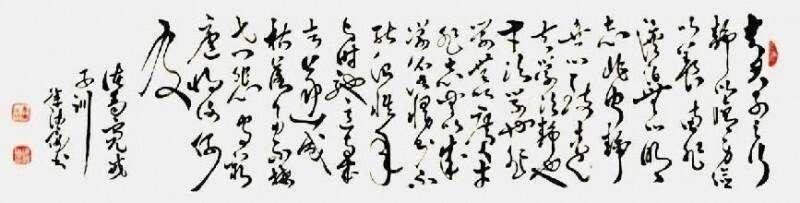 夫君子之行
静以修身俭
以养德非
澹泊无以明
志非宁静
无以致远
夫学须静也
才须学也非
学无以广才
非志无以成
学则不
能性年
与时驰意与
日去遂成
枯落多不接
世悲守穷
庐将复何
及
诸葛亮戒
子训
书